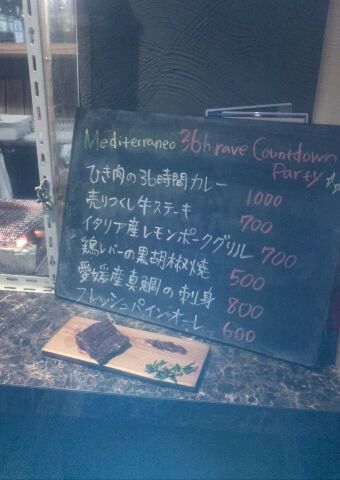 Mediterraneo 36h rave Countdown
Party
ひき肉の36時間カレー 1000
売りつくし牛ステーキ 700
イタリア産レモンポークグリル 700
鶏レバーの黒胡椒焼 500
愛媛産真鯛の刺身 800
フレッシュパインオーレ 600